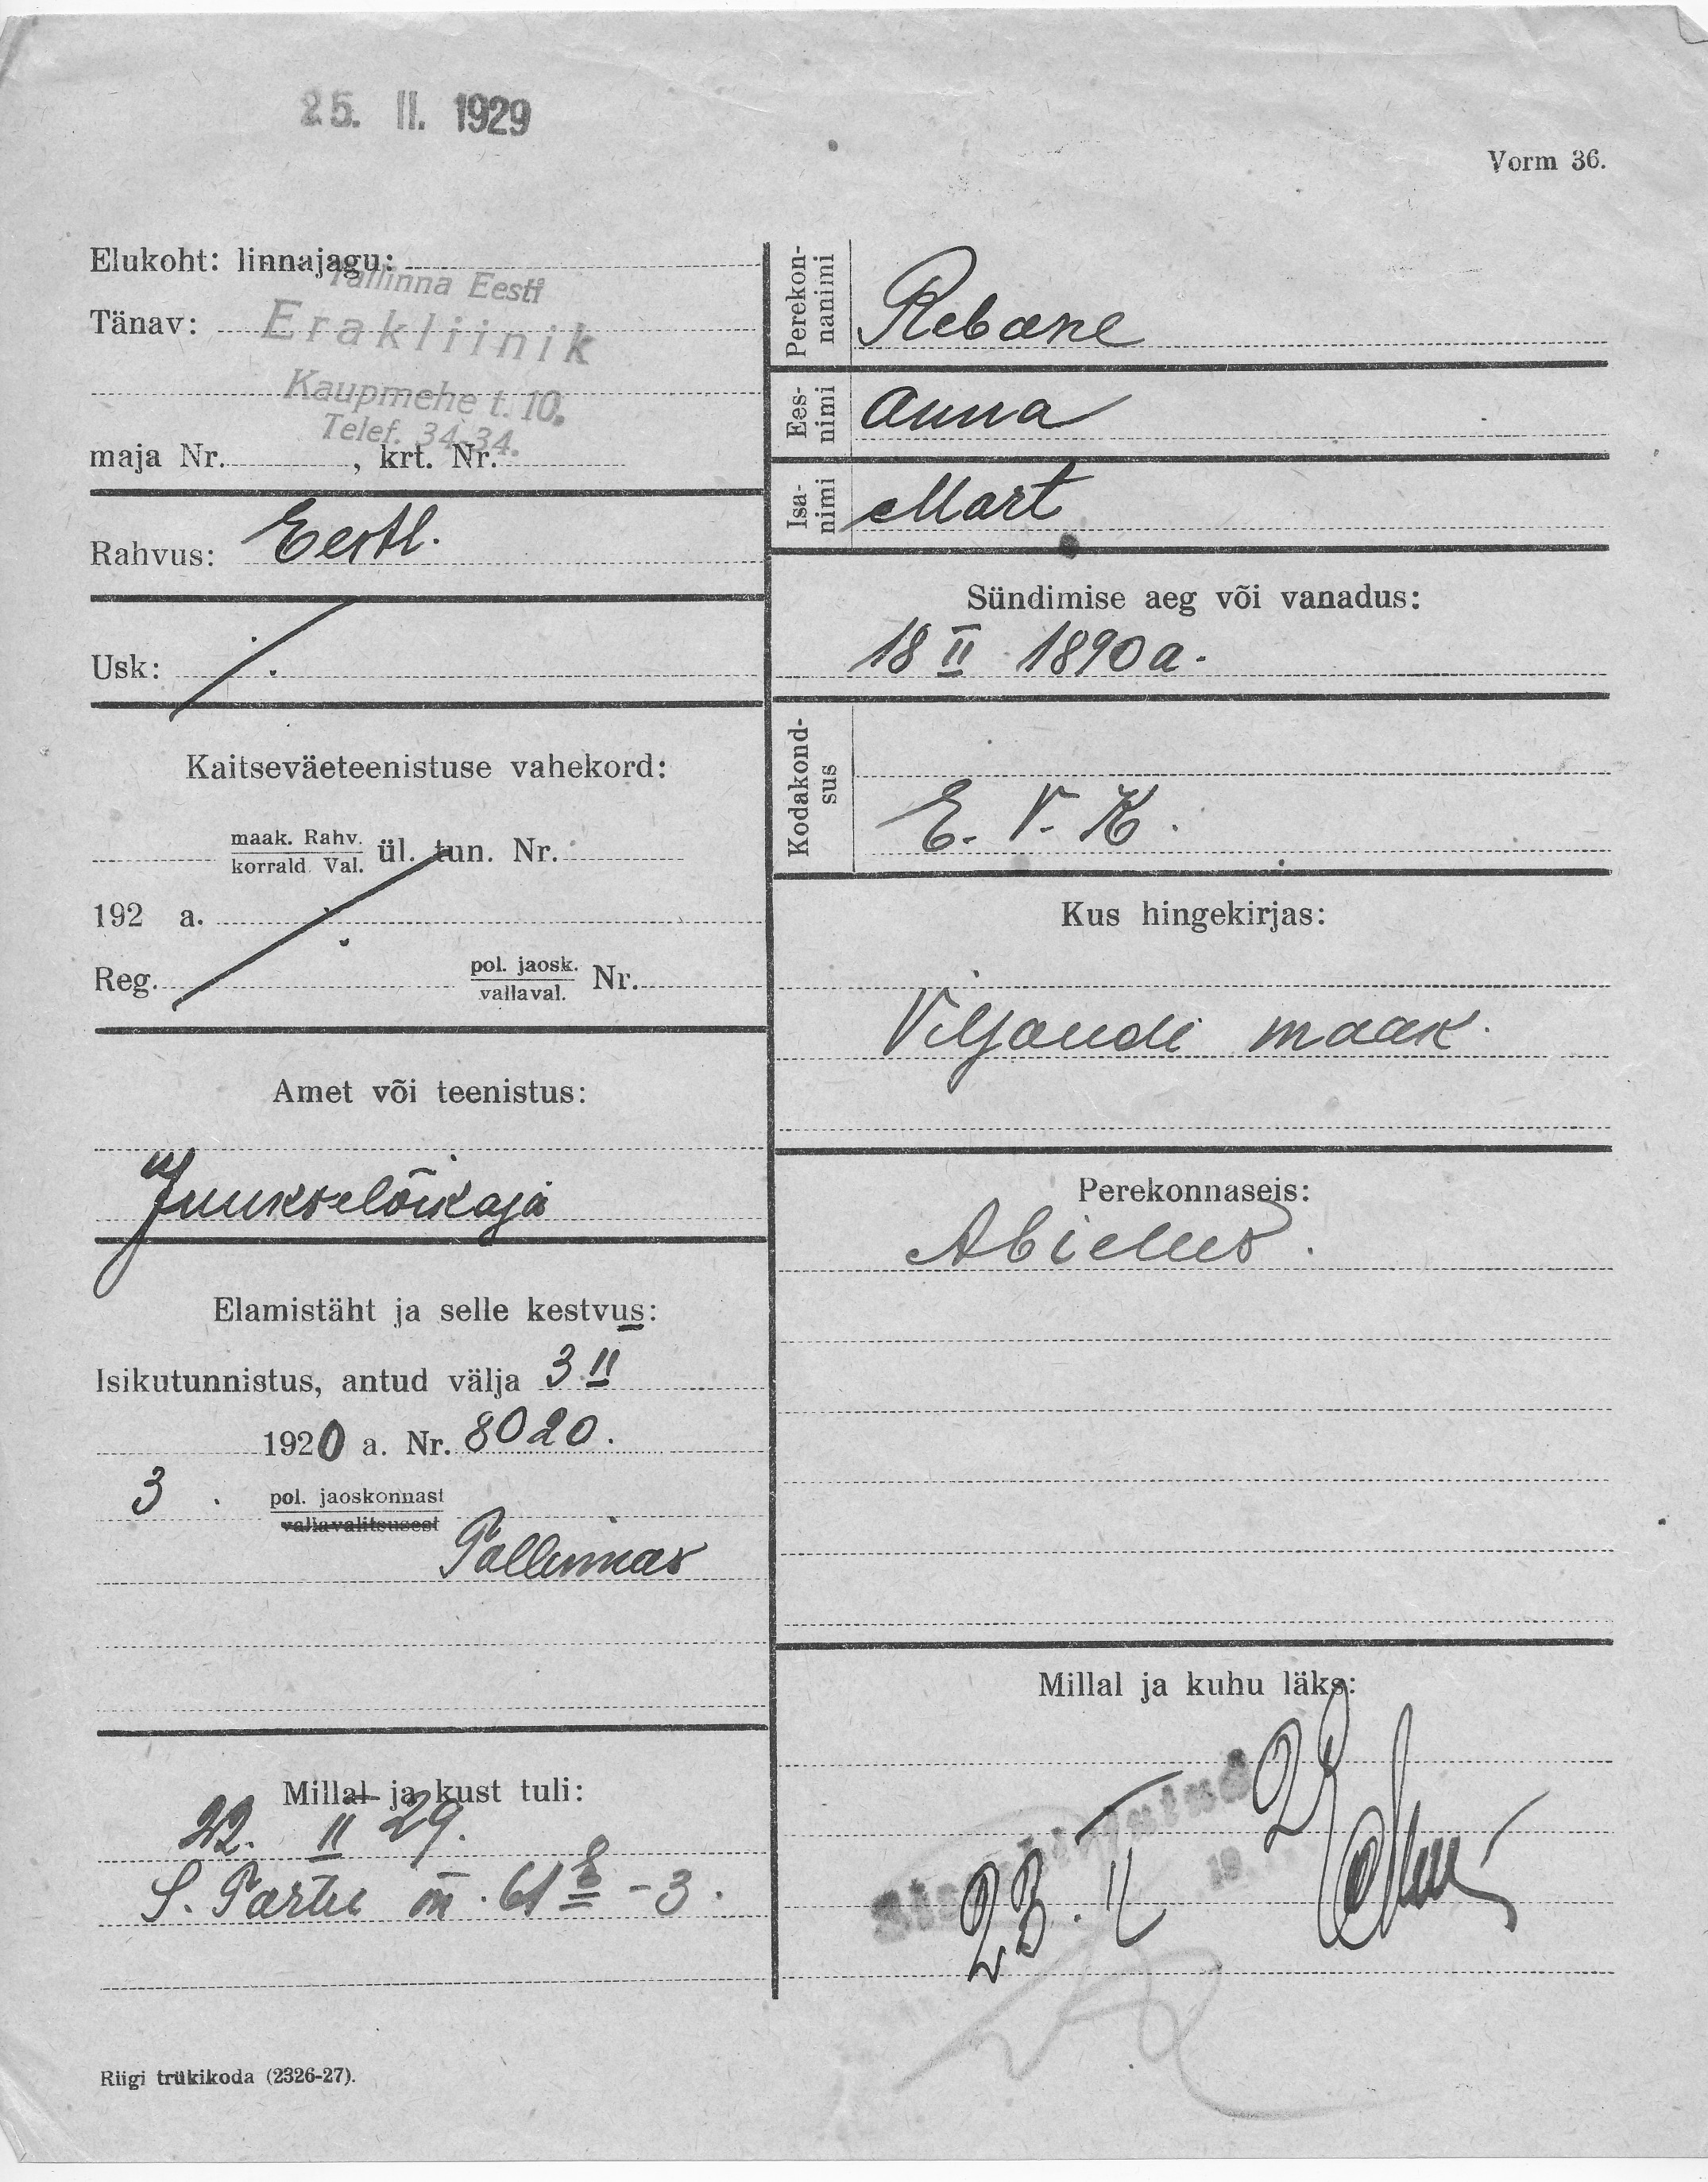 25. II. 1929
Vorm 36.
Elukoht: linnajagu:
Tallinna Eesti
Tänav:
Erakliinik
Kaupmehe t. 10.
Telef. 34-34.
maja Nr. , krt. Nr.
Rahvus: Eestl.
Usk:
Kaitseväeteenistuse vahekord:
maak. Rahv.
korrald. Val. ül. tun. Nr.
192 a.
Reg. pol. jaosk. Nr.
vallaval.
Amet või teenistus:
Juukselõikaja
Elamistäht ja selle kestvus:
Isikutunnistus, antud välja 3 II
1920 a. Nr. 8020.
3. pol. jaoskonnast
vallavalitsusest
Tallinnas
Millal ja kust tuli:
22. II 29.
S. Tartu m. 61 - 3.
Riigi trükikoda (2326-27).
Perekon-
nanimi
Rebane
Ees-
nimi
Anna
Isa-
nimi
Mart
Sündimise aeg või vanadus:
18 II 1890 a.
Kodakond-
sus
E. V. K.
Kus hingekirjas:
Viljandi maak.
Perekonnaseis:
Abielus.
Millal ja kuhu läks:
23. II